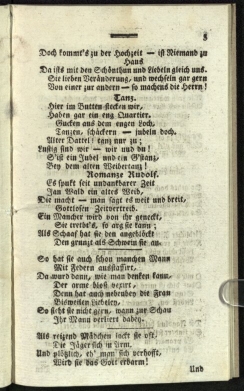 Doch kommt's zu der Hochzeit — ist Niemand zu
Haus
Da ists mit den Schönthun und Liebeln gleich aus.
Sie lieben Veränderung, und wechseln gar gern
Von einer zur andern — so machens die Herrn!
Tanz.
Hier im Butten stecken wir,
Haben gar ein eng Quartier,
Gucken aus dem engen Loch,
schäckern — jubeln doch.
Alter Dattel! tanz nur zu;
Lustig sind wir — wir und du!
S'ist ein Jubel und ein G'stanz,
Bey dem alten Weibertanz!
Romanze Rudolf.
Es spukt seit undankbarer Zeit
Im Wald ein altes Weib,
Die macht — man sagt es weit und breit,
Gottlosen Zeitvertreib.
Ein Mancher wird von ihr geneckt,
Sie treibt's, so arg sie kann;
Als Schaaf hat sie den angebleckt
Den grunzt als Schwein sie an.
So hat sie auch schon manchen Mann
Mit Federn ausstaffirt,
Da ward dann, wie man denken kann,
Der arme bloß vexirt,
Denn hat auch nebenbey die Frau
Bisweilen Liebeley,
So sieht sie nicht gern, wann zur Schau
Ihr Mann verliert dabey.
Als reizend Mädchen lockt sie oft,
Die Jäger sich in Arm,
Und plötzlich, eh' man sich verhofft,
Wird sie das Gott erbarm!
Und